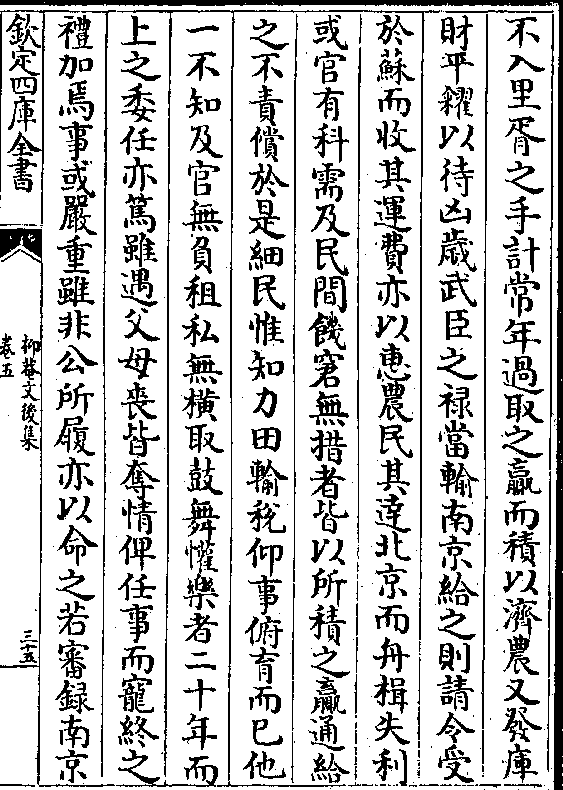 不入里胥之手計常年過取之贏而積以濟農又發庫
財平糴以待凶歳武臣之禄當輸南京給之則請令受
於蘇而收其運費亦以惠農民其逹北京而舟楫失利
或官有科需及民間饑窘無措者皆以所積之贏通給
之不責償於是細民惟知力田輸税仰事俯育而已他
一不知及官無負租私無横取鼓舞懽樂者二十年而
上之委任亦篤雖遇父母喪皆奪情俾任事而寵終之
禮加焉事或嚴重雖非公所履亦以命之若審録南京
欽定四庫全書
抑菴文後集
卷五
三十五